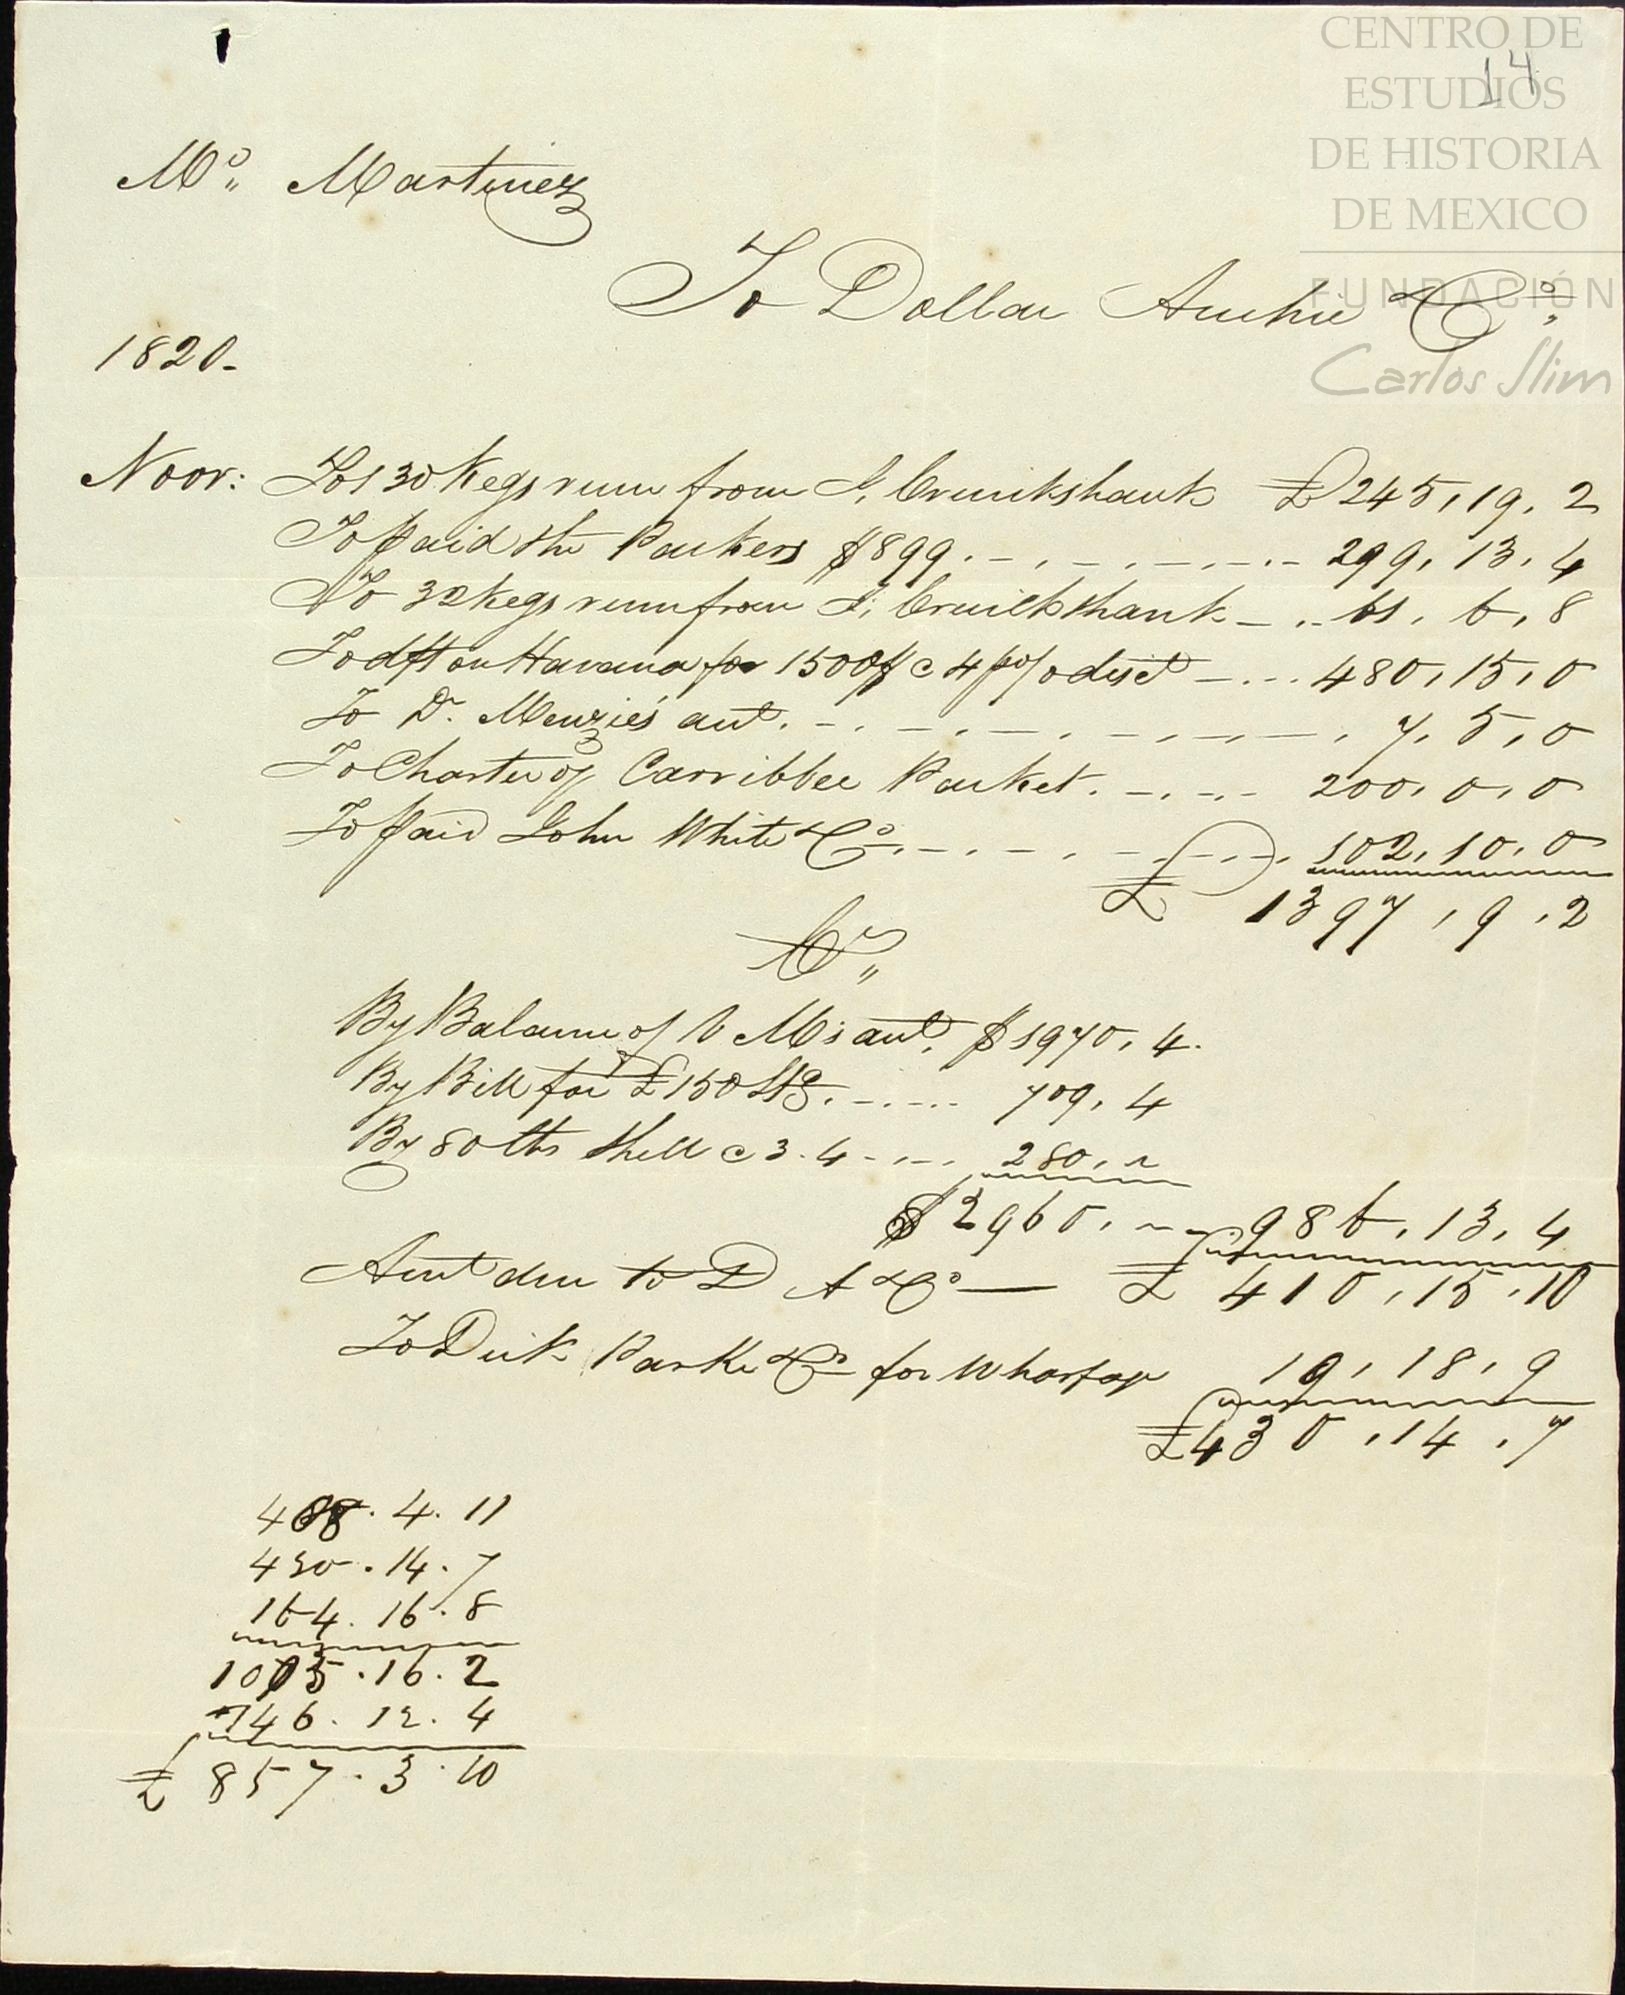 CENTRO DE
ESTUDIOS
DE HISTORIA
DE MEXICO
FUNDACIÓN
Carlos Slim
14
Mo,, Martinez
To Dollar Co,,
1820-
Novr: To 130 Kegs rum from J, Cruikshank £245,19,2
To paid the Packers $899.-.-.-.-.- 299,13,4
To 32 Kegs rum from J, Cruickshank -.. 61,6,8
To dft on Havana for 1500$ @ 4 p% disct -... 480,15,0
To Dr. Menzies' acct.-.-.-.-.-.-.-., 7,5,0
To Charter of Carribbee Packet.-.-.- 200,0,0
To paid John White & Co.-.-.-.-.-. 102,10,0
£ 1397,9,2
Cr,,
By Balance of V M's acct. $1970,4.
By Bill for £150 Stg.-.-.. 709,4
By 80 lbs shell @ 3.4 -.-.. 280,~
$2960,~ ~ 986,13,4
Amt due to D A & Co — £ 410,15,10
To Dick Parke & Co for Wharfage 19,18,9
£430,14,7
408.4.11
430.14.7
164.16.8
1003.16.2
746.12.4
£ 857.3.10